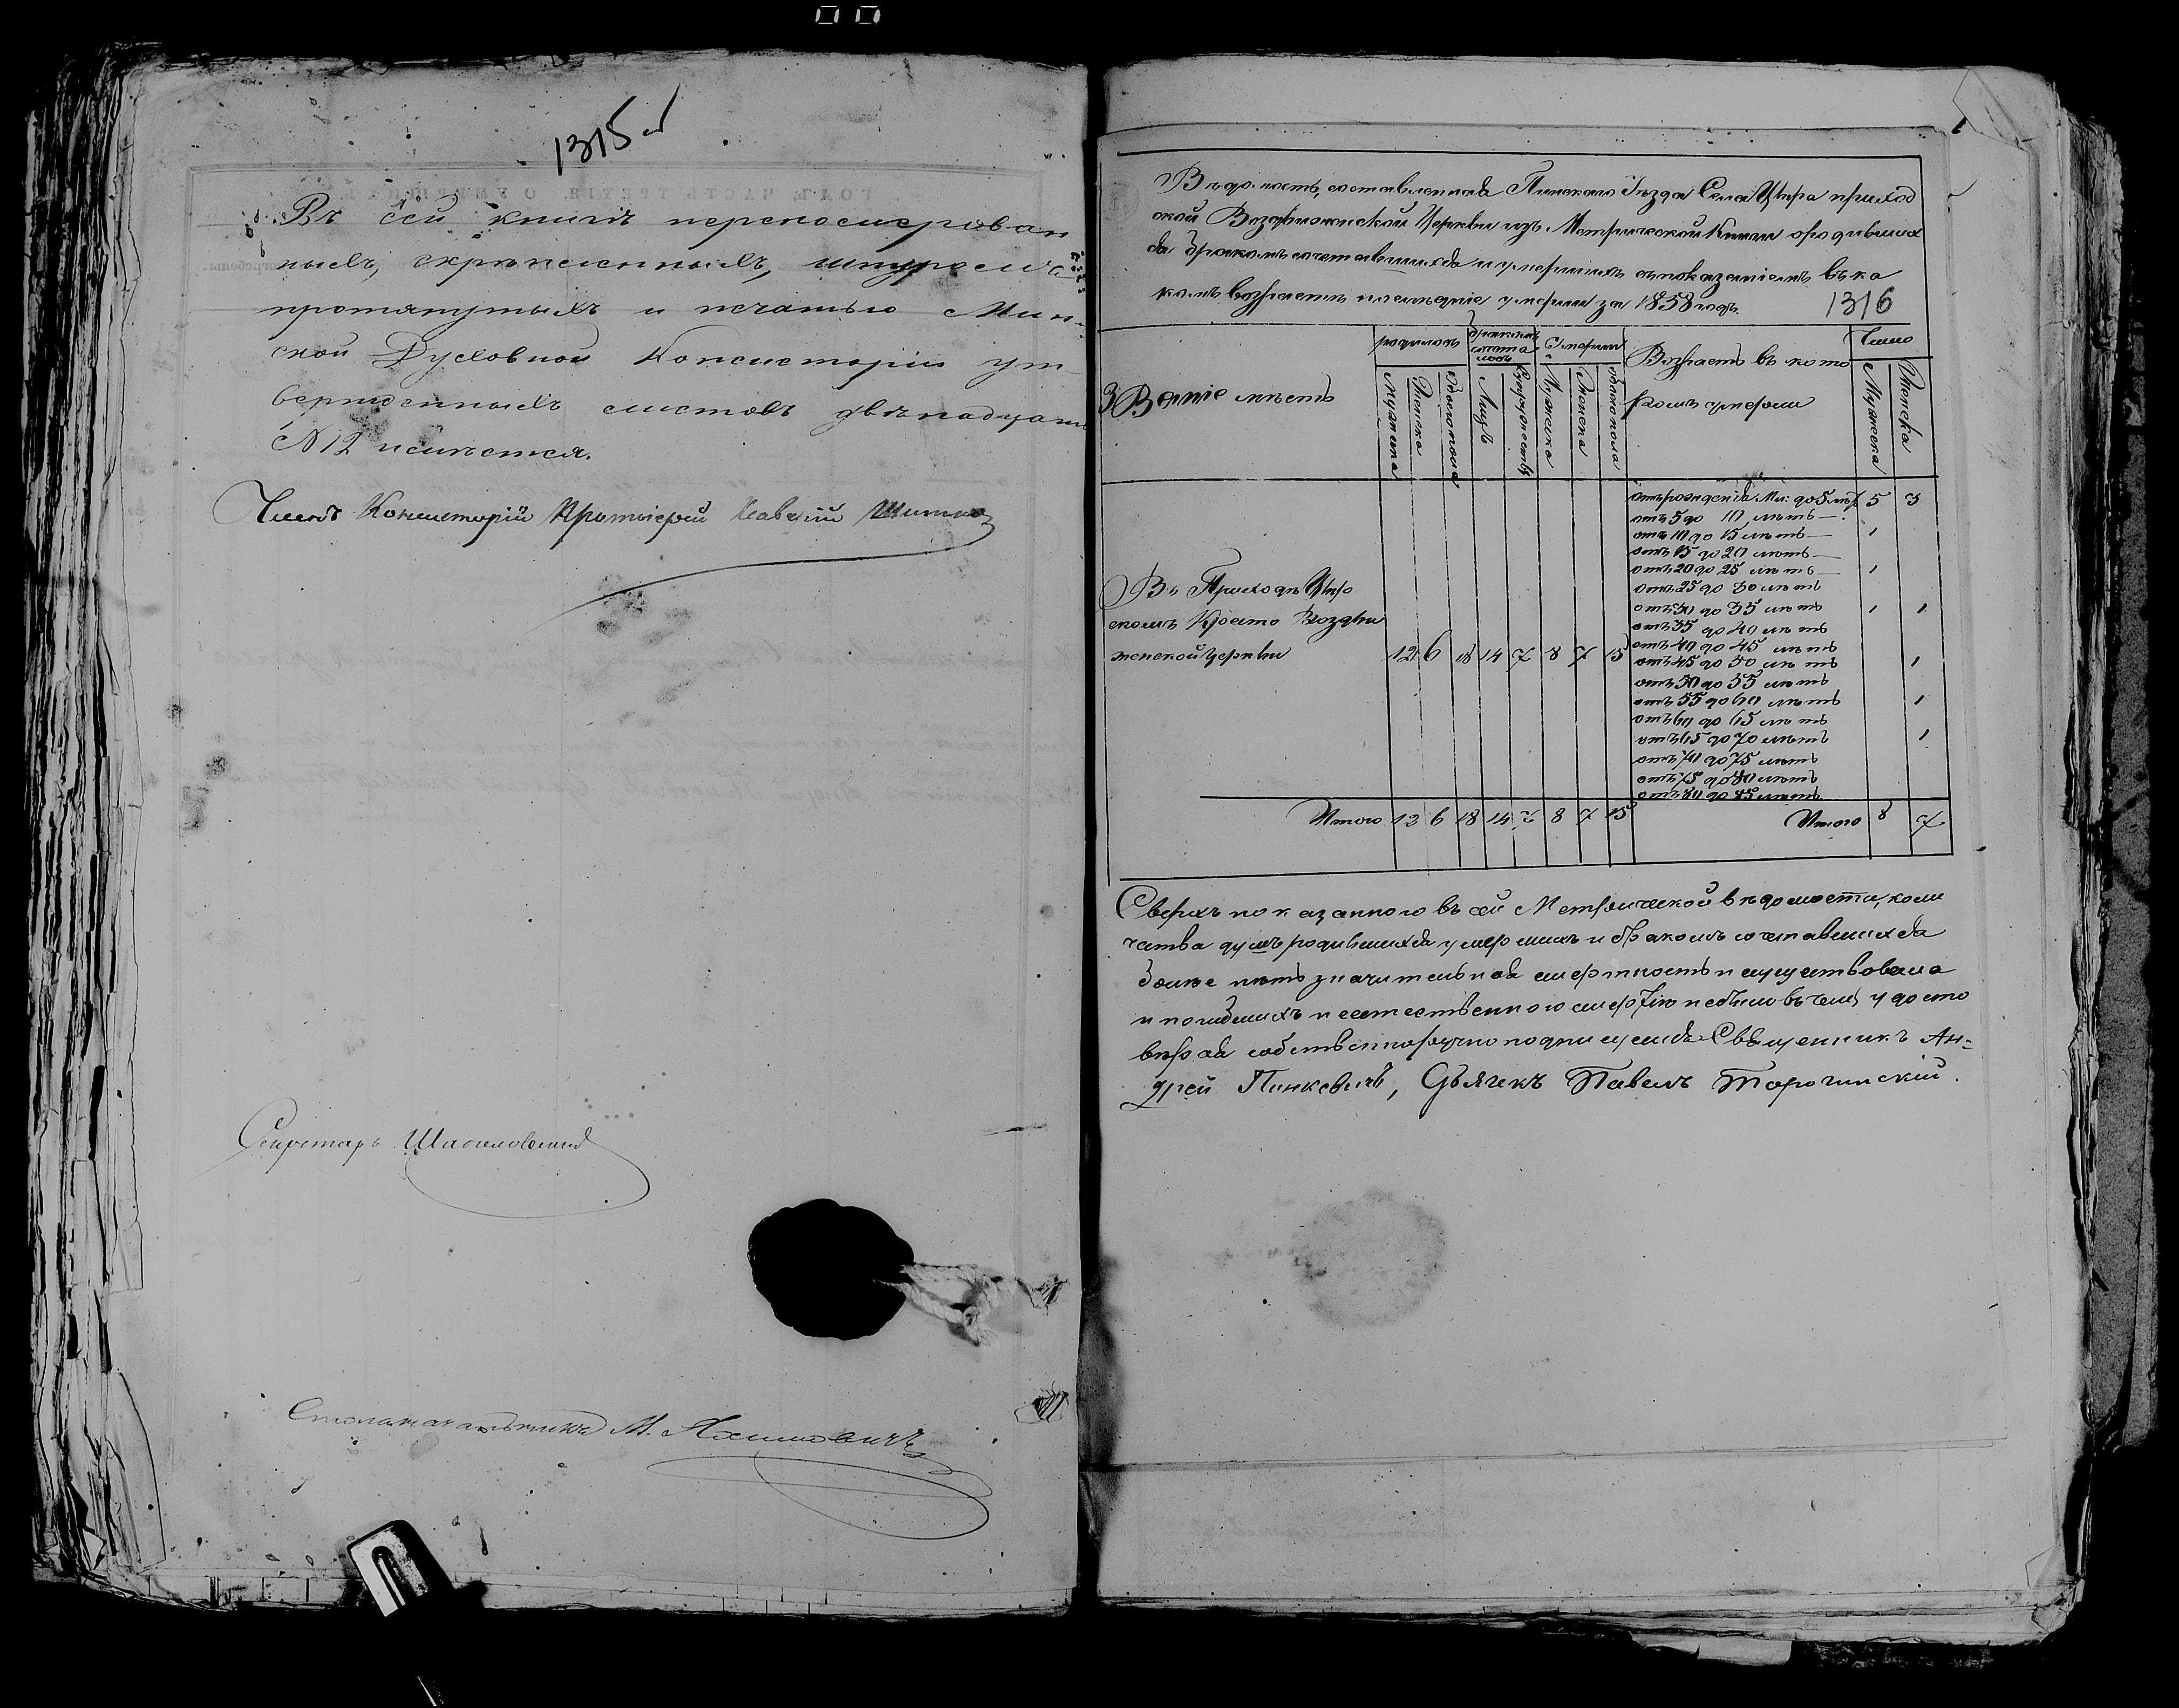 1315 об
Въ сей книгѣ переномерован
ныхъ, скрѣпленныхъ, шнуромъ
протянутыхъ и печатью Мин-
ской Духовной Консисторіи ут-
вержденныхъ листовъ двѣнадцать
N 12 числится.
Членъ Консисторіи Протоіерей
Секретарь
Столоначальникъ М.
Вѣдомость, составленная Пинскаго Уѣзда Села Цыра приход
ской Воздвиженской Церкви изъ Метрической Книги о родивших
ся бракомъ сочетавшихся и умершихъ съ показаніемъ въ ка
комъ возрастѣ последніе умерли за 1858 годъ. 1316
Званіе мѣстъ
родилось
Мужеска
Женска
Обоего пола
бракомъ
сочета
лось
Лицъ
Супружествъ
Умерли
Мужеска
Женска
обоего пола
Возрастъ въ кото
ромъ умерли
Число
Мужеска
Женска
Въ Приходѣ Цыр
скомъ Кресто Воздви
женской Церкви 12 6 18 14 7 8 7 15
отъ рожденія Мл: до 5 лѣтъ 5 3
отъ 5 до 10 лѣтъ —
отъ 10 до 15 лѣтъ — 1
отъ 15 до 20 лѣтъ —
отъ 20 до 25 лѣтъ — 1
отъ 25 до 30 лѣтъ
отъ 30 до 35 лѣтъ 1 1
отъ 35 до 40 лѣтъ
отъ 40 до 45 лѣтъ
отъ 45 до 50 лѣтъ 1
отъ 50 до 55 лѣтъ
отъ 55 до 60 лѣтъ 1
отъ 60 до 65 лѣтъ
отъ 65 до 70 лѣтъ 1
отъ 70 до 75 лѣтъ
отъ 75 до 80 лѣтъ
отъ 80 до 85 лѣтъ
Итого 12 6 18 14 7 8 7 15 Итого 8 7
Сверхъ показанного въ сей Метрической вѣдомости, коли
чества душъ родившихся умершихъ и бракомъ сочетавшихся
болѣе нѣтъ значительная смертность не существовала
и погибшихъ неестественною смертію небыло въ чемъ удосто
вѣряя собственноручно подписуемся Священникъ Ан-
дрей Пинкевичъ, Дьячекъ Павелъ Торочинскій.